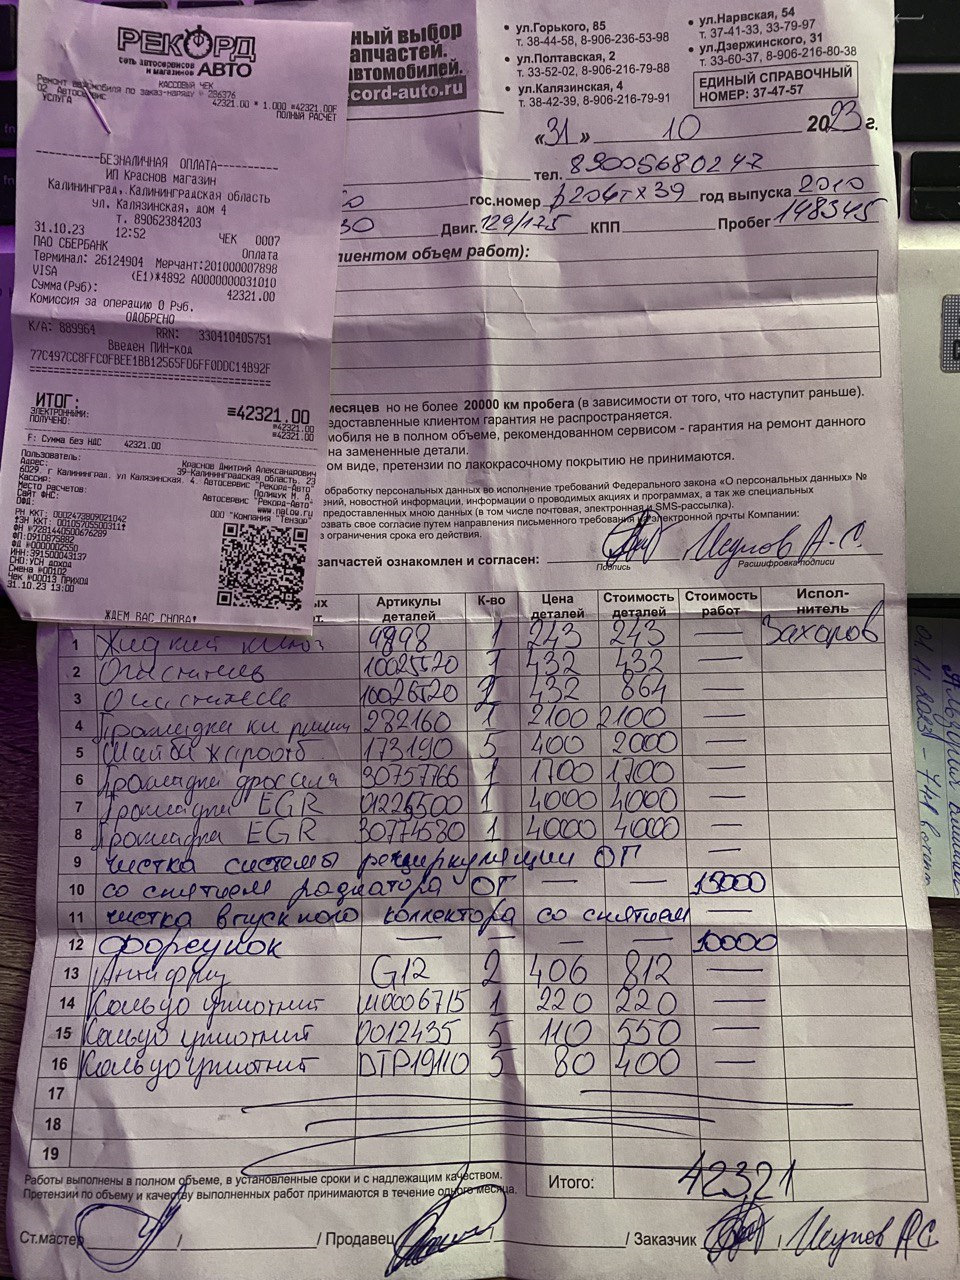 РЕКОРД
сеть автосервисов
и магазинов АВТО
КАССОВЫЙ ЧЕК
Ремонт автомобиля по заказ-наряду № 286376
02. Автосервис 42321.00 * 1.000 =42321.00F
УСЛУГА ПОЛНЫЙ РАСЧЕТ
БЕЗНАЛИЧНАЯ ОПЛАТА
ИП Краснов магазин
Калининград, Калининградская область
ул. Калязинская, дом 4
т. 89062384203
31.10.23 12:52 ЧЕК 0007
ПАО СБЕРБАНК Оплата
Терминал: 26124904 Мерчант:201000007898
VISA (E1)*4892 A0000000031010
Сумма(Руб): 42321.00
Комиссия за операцию 0 Руб.
ОДОБРЕНО
К/А: 889964 RRN: 330410405751
Введен ПИН-код
77C497CC8FFC0FBEE1BB12565F06FF0DDC14B92F
ИТОГ: =42321.00
ЭЛЕКТРОННЫМИ: =42321.00
ПОЛУЧЕНО: =42321.00
F: Сумма без НДС 42321.00
Пользователь: Краснов Дмитрий Александрович
Адрес: 39-Калининградская область, 23
6029 г Калининград, ул Калязинская, 4. Автосервис "Рекорд-Авто"
Кассир: Полищук М. А.
Место расчетов: Автосервис "Рекорд-Авто"
Сайт ФНС: www.nalog.ru
ОФД: ООО "Компания "Тензор"
РН ККТ: 0002473809021042
ЗН ККТ: 00105705500311
ФН №7281440500676289
ФП:0910875882
ФД №0000002550
ИНН:391500043137
СНО:УСН доход
Смена №00102
Чек №00013 ПРИХОД
31.10.23 13:00
ЖДЕМ ВАС СНОВА!
ный выбор
апчастей.
втомобилей.
cord-auto.ru
• ул.Горького, 85
т. 38-44-58, 8-906-236-53-98
• ул.Полтавская, 2
т. 33-52-02, 8-906-216-79-88
• ул.Калязинская, 4
т. 38-42-39, 8-906-216-79-91
• ул.Нарвская, 54
т. 37-41-33, 33-79-97
• ул.Дзержинского, 31
т. 33-60-37, 8-906-216-80-38
ЕДИНЫЙ СПРАВОЧНЫЙ
НОМЕР: 37-47-57
«31» 10 2023 г.
тел. 89005680247
гос.номер р206тх39 год выпуска 2010
30 Двиг. 129/175 КПП Пробег 148345
лиентом объем работ):
месяцев но не более 20000 км пробега (в зависимости от того, что наступит раньше).
едоставленные клиентом гарантия не распространяется.
мобиля не в полном объеме, рекомендованном сервисом - гарантия на ремонт данного
на замененные детали.
ом виде, претензии по лакокрасочному покрытию не принимаются.
обработку персональных данных во исполнение требований Федерального закона «О персональных данных» №
ний, новостной информации, информации о проводимых акциях и программах, а так же специальных
предоставленных мною данных (в том числе почтовая, электронная и SMS-рассылка).
озвать свое согласие путем направления письменного требования на электронной почты Компании:
з ограничения срока его действия.
запчастей ознакомлен и согласен: Исупов А.С.
Подпись Расшифровка подписи
ых Артикулы К-во Цена Стоимость Стоимость Испол-
т. деталей деталей деталей работ нитель
1 Жидкий ключ 9898 1 243 243 — Захаров
2 Очиститель 10025520 1 432 432 —
3 Очиститель 10026520 2 432 864 —
4 Прокладка 282160 1 2100 2100 —
5 Шайба жарооб 173190 5 400 2000 —
6 Прокладка дросселя 30757766 1 1700 1700 —
7 Прокладка EGR 01226500 1 4000 4000 —
8 Прокладка EGR 30774580 1 4000 4000 —
9 чистка системы рециркуляции ОГ —
10 со снятием радиатора ОГ — — 15000
11 чистка впускного коллектора со снятием —
12 форсунок — — — — 10000
13 Антифриз G12 2 406 812 —
14 Кольцо уплотнит 1 220 220 —
15 Кольцо уплотнит 0012435 5 110 550 —
16 Кольцо уплотнит DTP19110 5 80 400 —
17
18
19
Работы выполнены в полном объеме, в установленные сроки и с надлежащим качеством.
Претензии по объему и качеству выполненных работ принимаются в течение одного месяца.
Итого: 42321
Ст.мастер / / Продавец / / Заказчик / Исупов АС